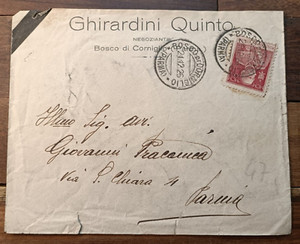 Ghirardini Quinto
NEGOZIANTE
Bosco di Corniglio
BOSCO DI CORNIGLIO
(PARMA)
Ill.mo Sig. avv.
Giovanni
Via S. Chiara 4
Parma